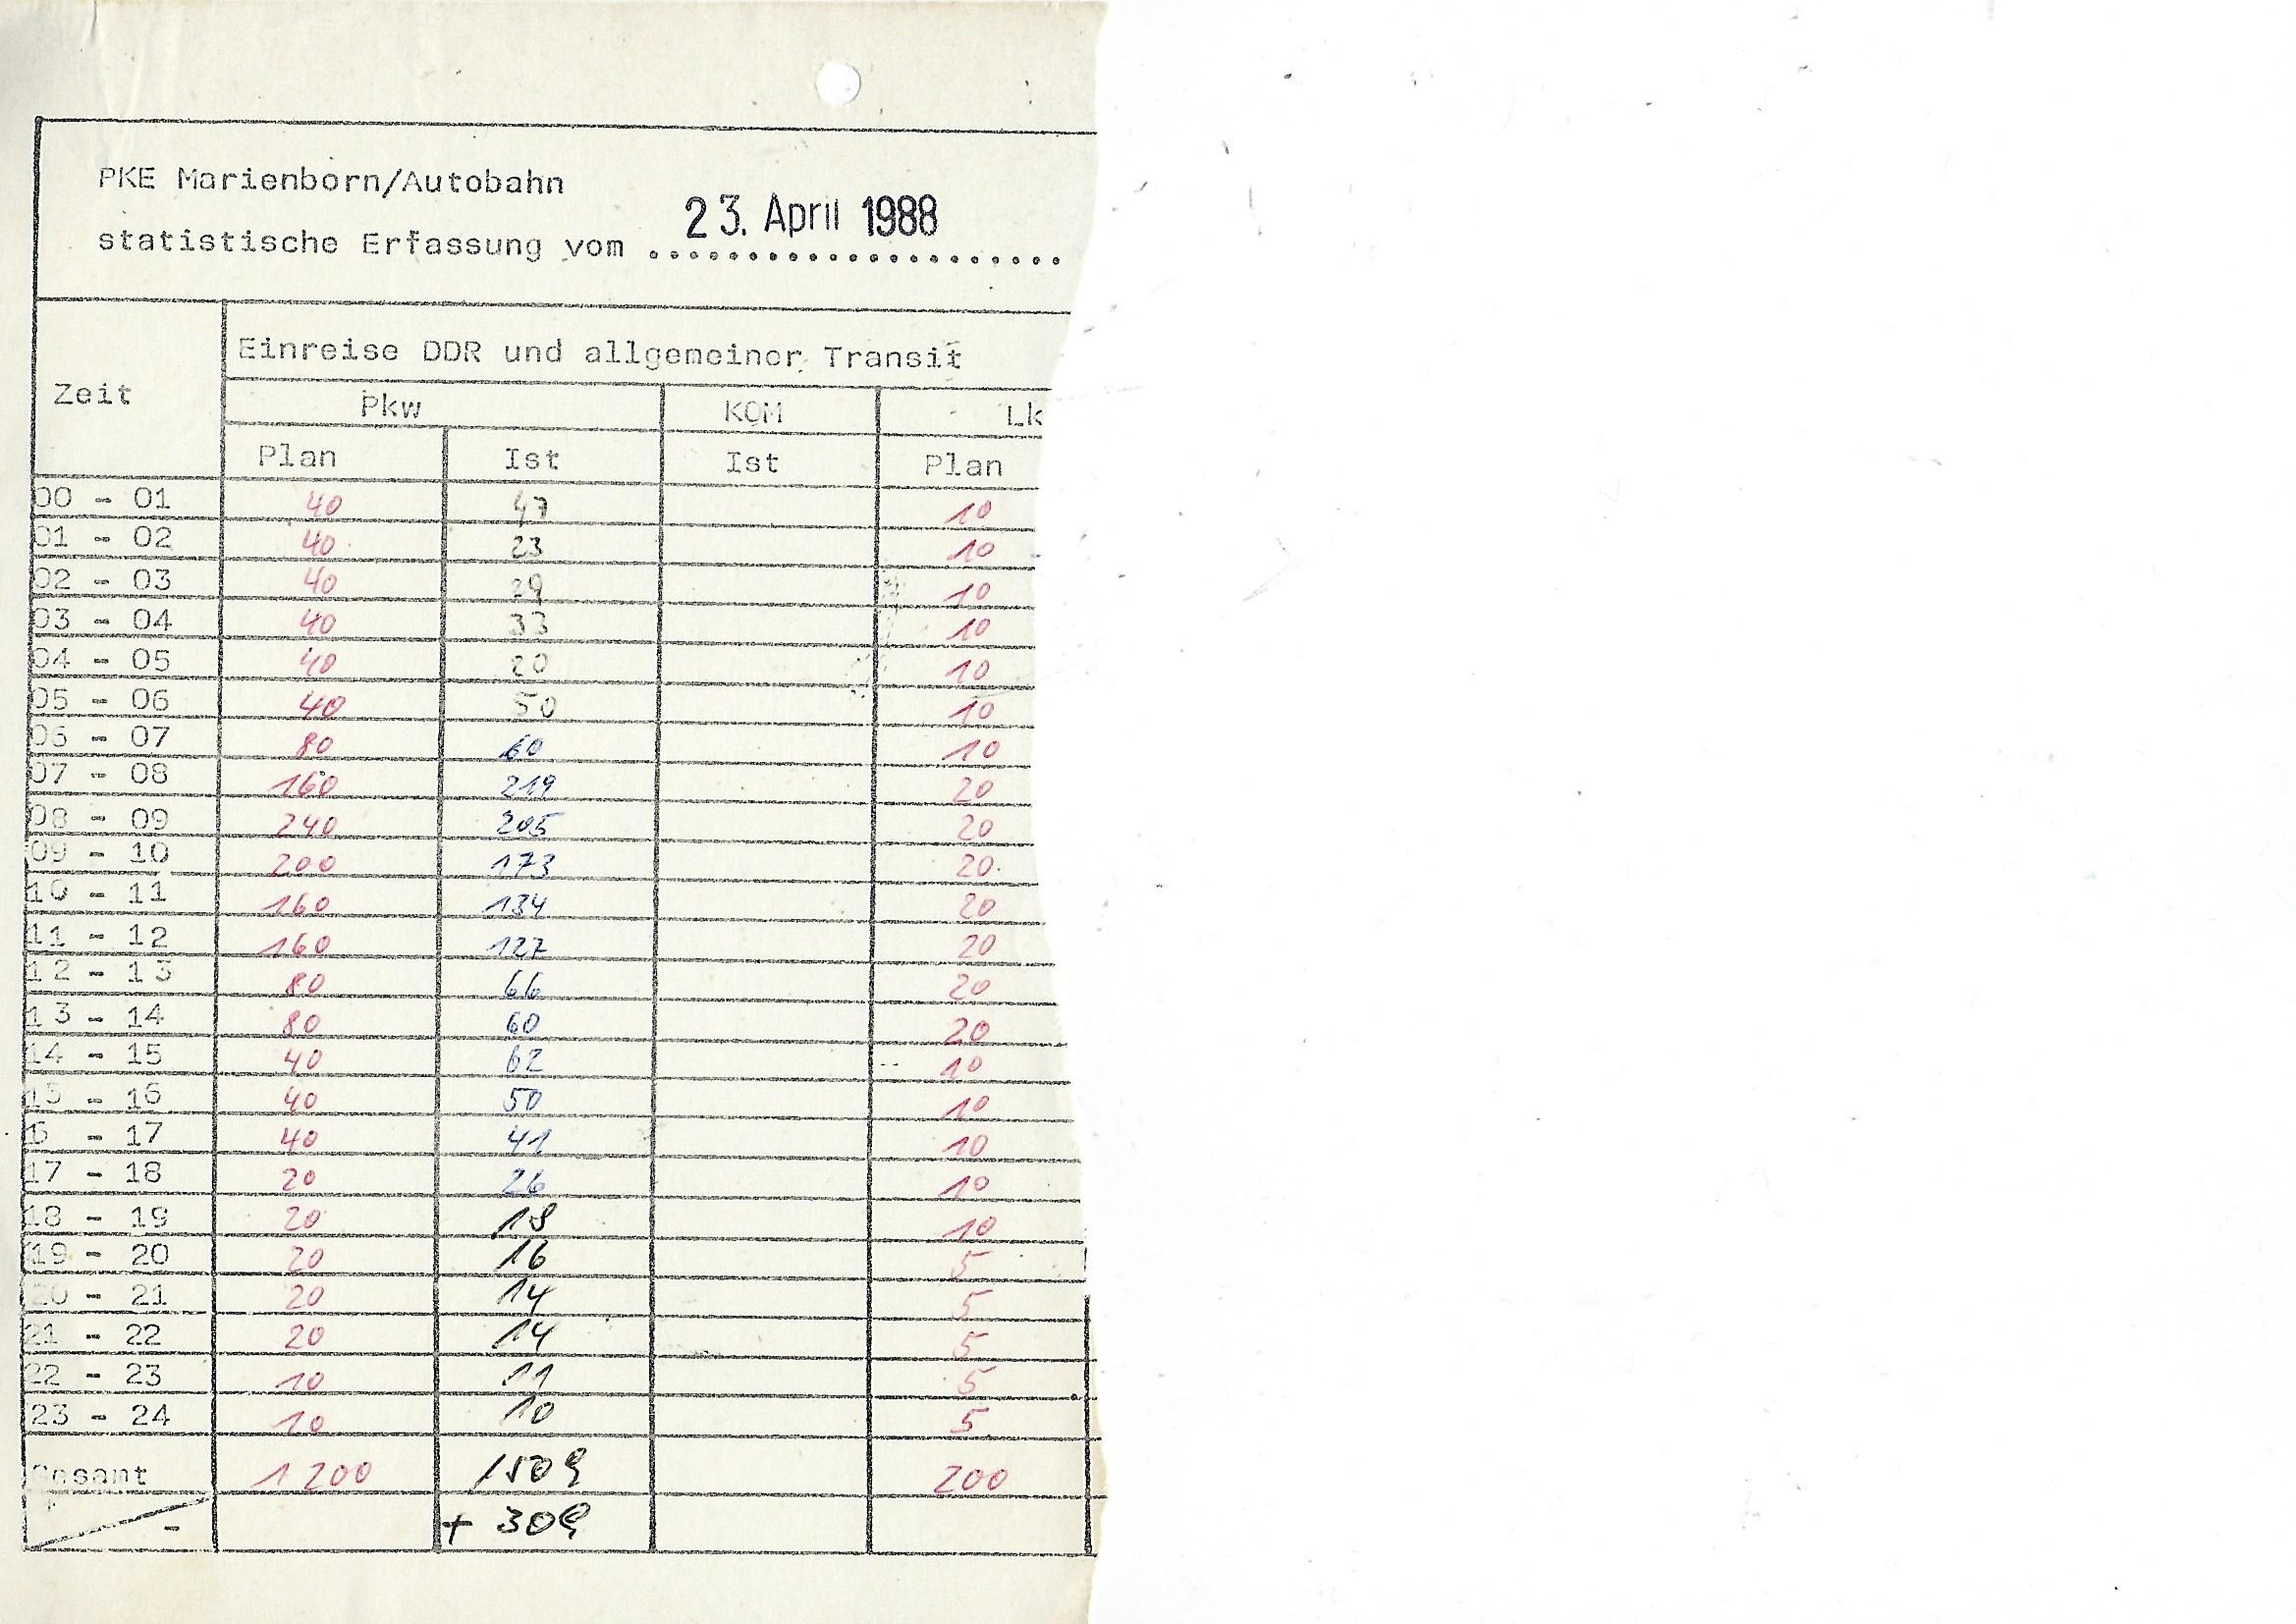 PKE Marienborn/Autobahn
statistische Erfassung vom 23. April 1988
Einreise DDR und allgemeiner Transit
Zeit
Pkw KOM Lk
Plan Ist Ist Plan
00 - 01 40 47 10
01 - 02 40 23 10
02 - 03 40 29 10
03 - 04 40 33 10
04 - 05 40 20 10
05 - 06 40 50 10
06 - 07 80 60 10
07 - 08 160 219 20
08 - 09 240 205 20
09 - 10 200 173 20
10 - 11 160 134 20
11 - 12 160 127 20
12 - 13 80 66 20
13 - 14 80 60 20
14 - 15 40 62 10
15 - 16 40 50 10
6 - 17 40 41 10
17 - 18 20 26 10
18 - 19 20 19 10
19 - 20 20 16 5
20 - 21 20 14 5
21 - 22 20 14 5
22 - 23 10 11 5
23 - 24 10 10 5
Gesamt 1200 1509 200
- + 309